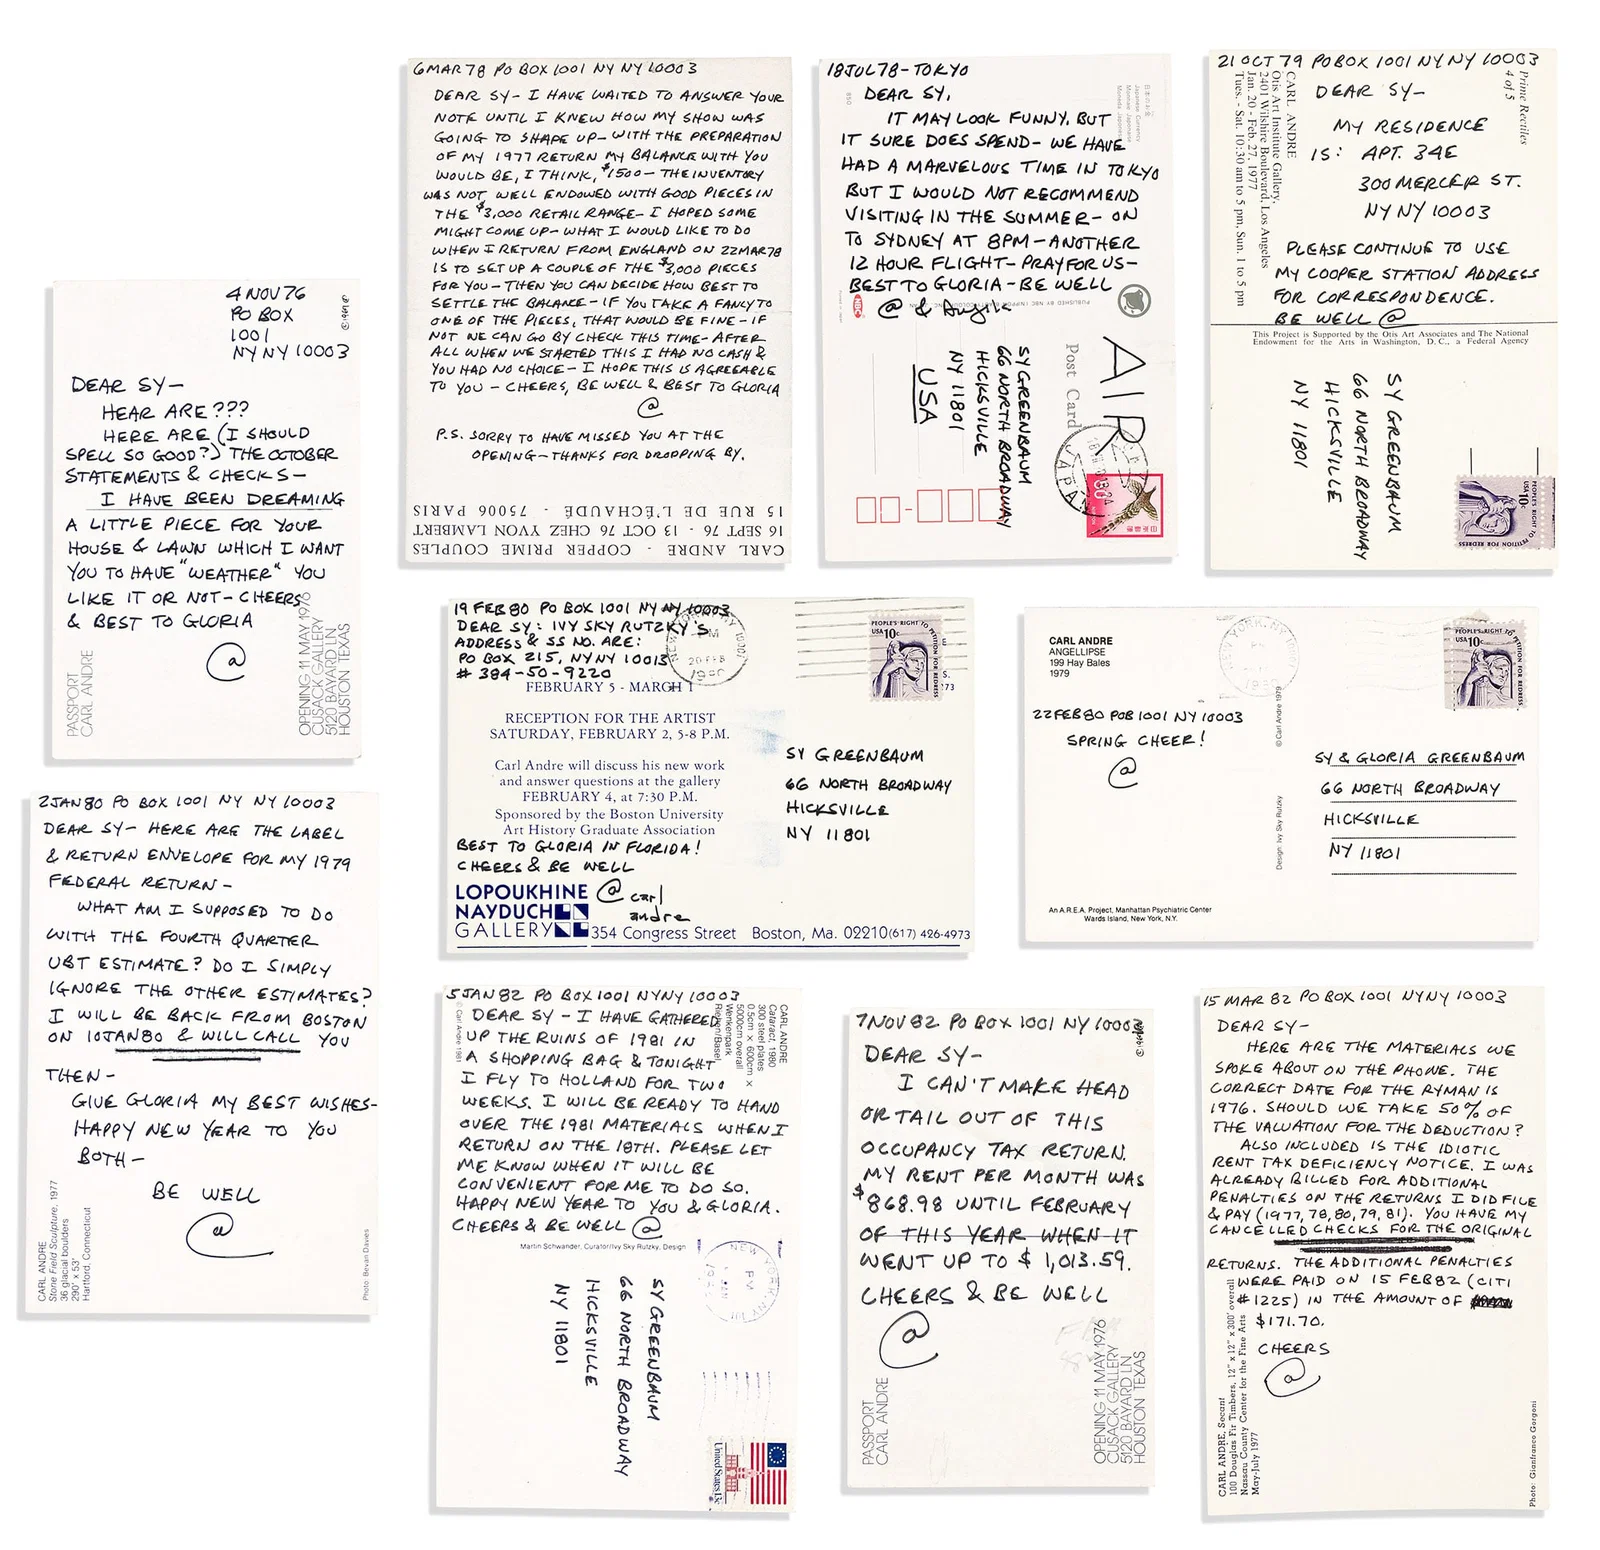 4 NOV 76
PO BOX
1001
NY NY 10003
DEAR SY—
HEAR ARE???
HERE ARE (I SHOULD
SPELL SO GOOD?) THE OCTOBER
STATEMENTS & CHECKS—
I HAVE BEEN DREAMING
A LITTLE PIECE FOR YOUR
HOUSE & LAWN WHICH I WANT
YOU TO HAVE "WEATHER" YOU
LIKE IT OR NOT—CHEERS
& BEST TO GLORIA
@
PASSPORT
CARL ANDRE
OPENING 11 MAY 1976
CUSACK GALLERY
5120 BAYARD LN
HOUSTON TEXAS
6 MAR 78 PO BOX 1001 NY NY 10003
DEAR SY— I HAVE WAITED TO ANSWER YOUR
NOTE UNTIL I KNEW HOW MY SHOW WAS
GOING TO SHAPE UP—WITH THE PREPARATION
OF MY 1977 RETURN MY BALANCE WITH YOU
WOULD BE, I THINK, $1500—THE INVENTORY
WAS NOT WELL ENDOWED WITH GOOD PIECES IN
THE $3,000 RETAIL RANGE—I HOPED SOME
MIGHT COME UP—WHAT I WOULD LIKE TO DO
WHEN I RETURN FROM ENGLAND ON 22 MAR 78
IS TO SET UP A COUPLE OF THE $3,000 PIECES
FOR YOU—THEN YOU CAN DECIDE HOW BEST TO
SETTLE THE BALANCE—IF YOU TAKE A FANCY TO
ONE OF THE PIECES, THAT WOULD BE FINE—IF
NOT WE CAN GO BY CHECK THIS TIME—AFTER
ALL WHEN WE STARTED THIS I HAD NO CASH &
YOU HAD NO CHOICE—I HOPE THIS IS AGREEABLE
TO YOU—CHEERS, BE WELL & BEST TO GLORIA
@
P.S. SORRY TO HAVE MISSED YOU AT THE
OPENING—THANKS FOR DROPPING BY.
CARL ANDRE - COPPER PRIME COUPLES
16 SEPT 76 - 13 OCT 76 CHEZ YVON LAMBERT
15 RUE DE L'ÉCHAUDÉ - 75006 PARIS
18 JUL 78—TOKYO
DEAR SY,
IT MAY LOOK FUNNY, BUT
IT SURE DOES SPEND—WE HAVE
HAD A MARVELOUS TIME IN TOKYO
BUT I WOULD NOT RECOMMEND
VISITING IN THE SUMMER—ON
TO SYDNEY AT 8PM—ANOTHER
12 HOUR FLIGHT—PRAY FOR US—
BEST TO GLORIA—BE WELL
@ & Angela
日本の貨幣
Japanese Currency
Monnaie Japonaise
Moneda Japonesa
850
NBC
AIR
Post Card
SY GREENBAUM
66 NORTH BROADWAY
HICKSVILLE
NY 11801
USA
JAPAN
日本郵便
80
21 OCT 79 PO BOX 1001 NY NY 10003
DEAR SY—
MY RESIDENCE
IS: APT. 34E
300 MERCER ST.
NY NY 10003
PLEASE CONTINUE TO USE
MY COOPER STATION ADDRESS
FOR CORRESPONDENCE.
BE WELL @
Prime Rectiles
4 of 5
CARL ANDRE
Otis Art Institute Gallery,
2401 Wilshire Boulevard, Los Angeles
Jan. 20 - Feb. 27, 1977
Tues. - Sat. 10:30 am to 5 pm, Sun. 1 to 5 pm
This Project is Supported by the Otis Art Associates and The National
Endowment for the Arts in Washington, D. C., a Federal Agency
SY GREENBAUM
66 NORTH BROADWAY
HICKSVILLE
NY 11801
PEOPLE'S RIGHT TO PETITION FOR REDRESS
USA 10c
19 FEB 80 PO BOX 1001 NY NY 10003
DEAR SY: IVY SKY RUTZKY'S
ADDRESS & SS NO. ARE:
PO BOX 215, NY NY 10013
# 384-50-9220
FEBRUARY 5 - MARCH 1
RECEPTION FOR THE ARTIST
SATURDAY, FEBRUARY 2, 5-8 P.M.
Carl Andre will discuss his new work
and answer questions at the gallery
FEBRUARY 4, at 7:30 P.M.
Sponsored by the Boston University
Art History Graduate Association
BEST TO GLORIA IN FLORIDA!
CHEERS & BE WELL
@ carl
andre
LOPOUKHINE
NAYDUCH
GALLERY
354 Congress Street Boston, Ma. 02210 (617) 426-4973
20 FEB
1980
PEOPLE'S RIGHT TO PETITION FOR REDRESS
USA 10c
SY GREENBAUM
66 NORTH BROADWAY
HICKSVILLE
NY 11801
CARL ANDRE
ANGELLIPSE
199 Hay Bales
1979
22 FEB 80 POB 1001 NY 10003
SPRING CHEER!
@
© Carl Andre 1979
Design: Ivy Sky Rutzky
An A.R.E.A. Project, Manhattan Psychiatric Center
Wards Island, New York, N.Y.
PEOPLE'S RIGHT TO PETITION FOR REDRESS
USA 10c
SY & GLORIA GREENBAUM
66 NORTH BROADWAY
HICKSVILLE
NY 11801
2 JAN 80 PO BOX 1001 NY NY 10003
DEAR SY— HERE ARE THE LABEL
& RETURN ENVELOPE FOR MY 1979
FEDERAL RETURN—
WHAT AM I SUPPOSED TO DO
WITH THE FOURTH QUARTER
UBT ESTIMATE? DO I SIMPLY
IGNORE THE OTHER ESTIMATES?
I WILL BE BACK FROM BOSTON
ON 10 JAN 80 & WILL CALL YOU
THEN—
GIVE GLORIA MY BEST WISHES—
HAPPY NEW YEAR TO YOU
BOTH—
BE WELL
@
CARL ANDRE
Stone Field Sculpture, 1977
36 glacial boulders
290' x 53'
Hartford, Connecticut
Photo: Bevan Davies
5 JAN 82 PO BOX 1001 NY NY 10003
DEAR SY— I HAVE GATHERED
UP THE RUINS OF 1981 IN
A SHOPPING BAG & TONIGHT
I FLY TO HOLLAND FOR TWO
WEEKS. I WILL BE READY TO HAND
OVER THE 1981 MATERIALS WHEN I
RETURN ON THE 18TH. PLEASE LET
ME KNOW WHEN IT WILL BE
CONVENIENT FOR ME TO DO SO.
HAPPY NEW YEAR TO YOU & GLORIA.
CHEERS & BE WELL @
CARL ANDRE
Cataract, 1980
300 steel plates
0.5cm x 600cm x
5000cm overall
Wenkenpark
Riehen/Basel
© Carl Andre 1981
Martin Schwander, Curator/Ivy Sky Rutzky, Design
SY GREENBAUM
66 NORTH BROADWAY
HICKSVILLE
NY 11801
United States 13c
7 NOV 82 PO BOX 1001 NY 10003
DEAR SY—
I CAN'T MAKE HEAD
OR TAIL OUT OF THIS
OCCUPANCY TAX RETURN.
MY RENT PER MONTH WAS
$868.98 UNTIL FEBRUARY
OF THIS YEAR WHEN IT
WENT UP TO $1,013.59.
CHEERS & BE WELL
@
PASSPORT
CARL ANDRE
OPENING 11 MAY 1976
CUSACK GALLERY
5120 BAYARD LN
HOUSTON TEXAS
15 MAR 82 PO BOX 1001 NY NY 10003
DEAR SY—
HERE ARE THE MATERIALS WE
SPOKE ABOUT ON THE PHONE. THE
CORRECT DATE FOR THE RYMAN IS
1976. SHOULD WE TAKE 50% OF
THE VALUATION FOR THE DEDUCTION?
ALSO INCLUDED IS THE IDIOTIC
RENT TAX DEFICIENCY NOTICE. I WAS
ALREADY BILLED FOR ADDITIONAL
PENALTIES ON THE RETURNS I DID FILE
& PAY (1977, 78, 80, 79, 81). YOU HAVE MY
CANCELLED CHECKS FOR THE ORIGINAL
RETURNS. THE ADDITIONAL PENALTIES
WERE PAID ON 15 FEB 82 (CITI
#1225) IN THE AMOUNT OF
$171.70.
CHEERS
@
CARL ANDRE, Secant
100 Douglas Fir Timbers, 12" x 12" x 300' overall
Nassau County Center for the Fine Arts
May-July 1977
Photo: Gianfranco Gorgoni